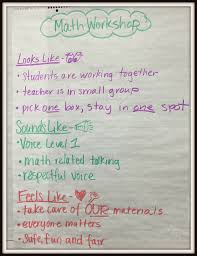 Math Workshop
Looks Like-
• Students are working together
• teacher is in small group
• pick one box, stay in one spot
Sounds Like-
• Voice Level 1
• math related talking
• respectful voice
Feels Like-
• take care of OUR materials
• everyone matters
• Safe, fun and fair